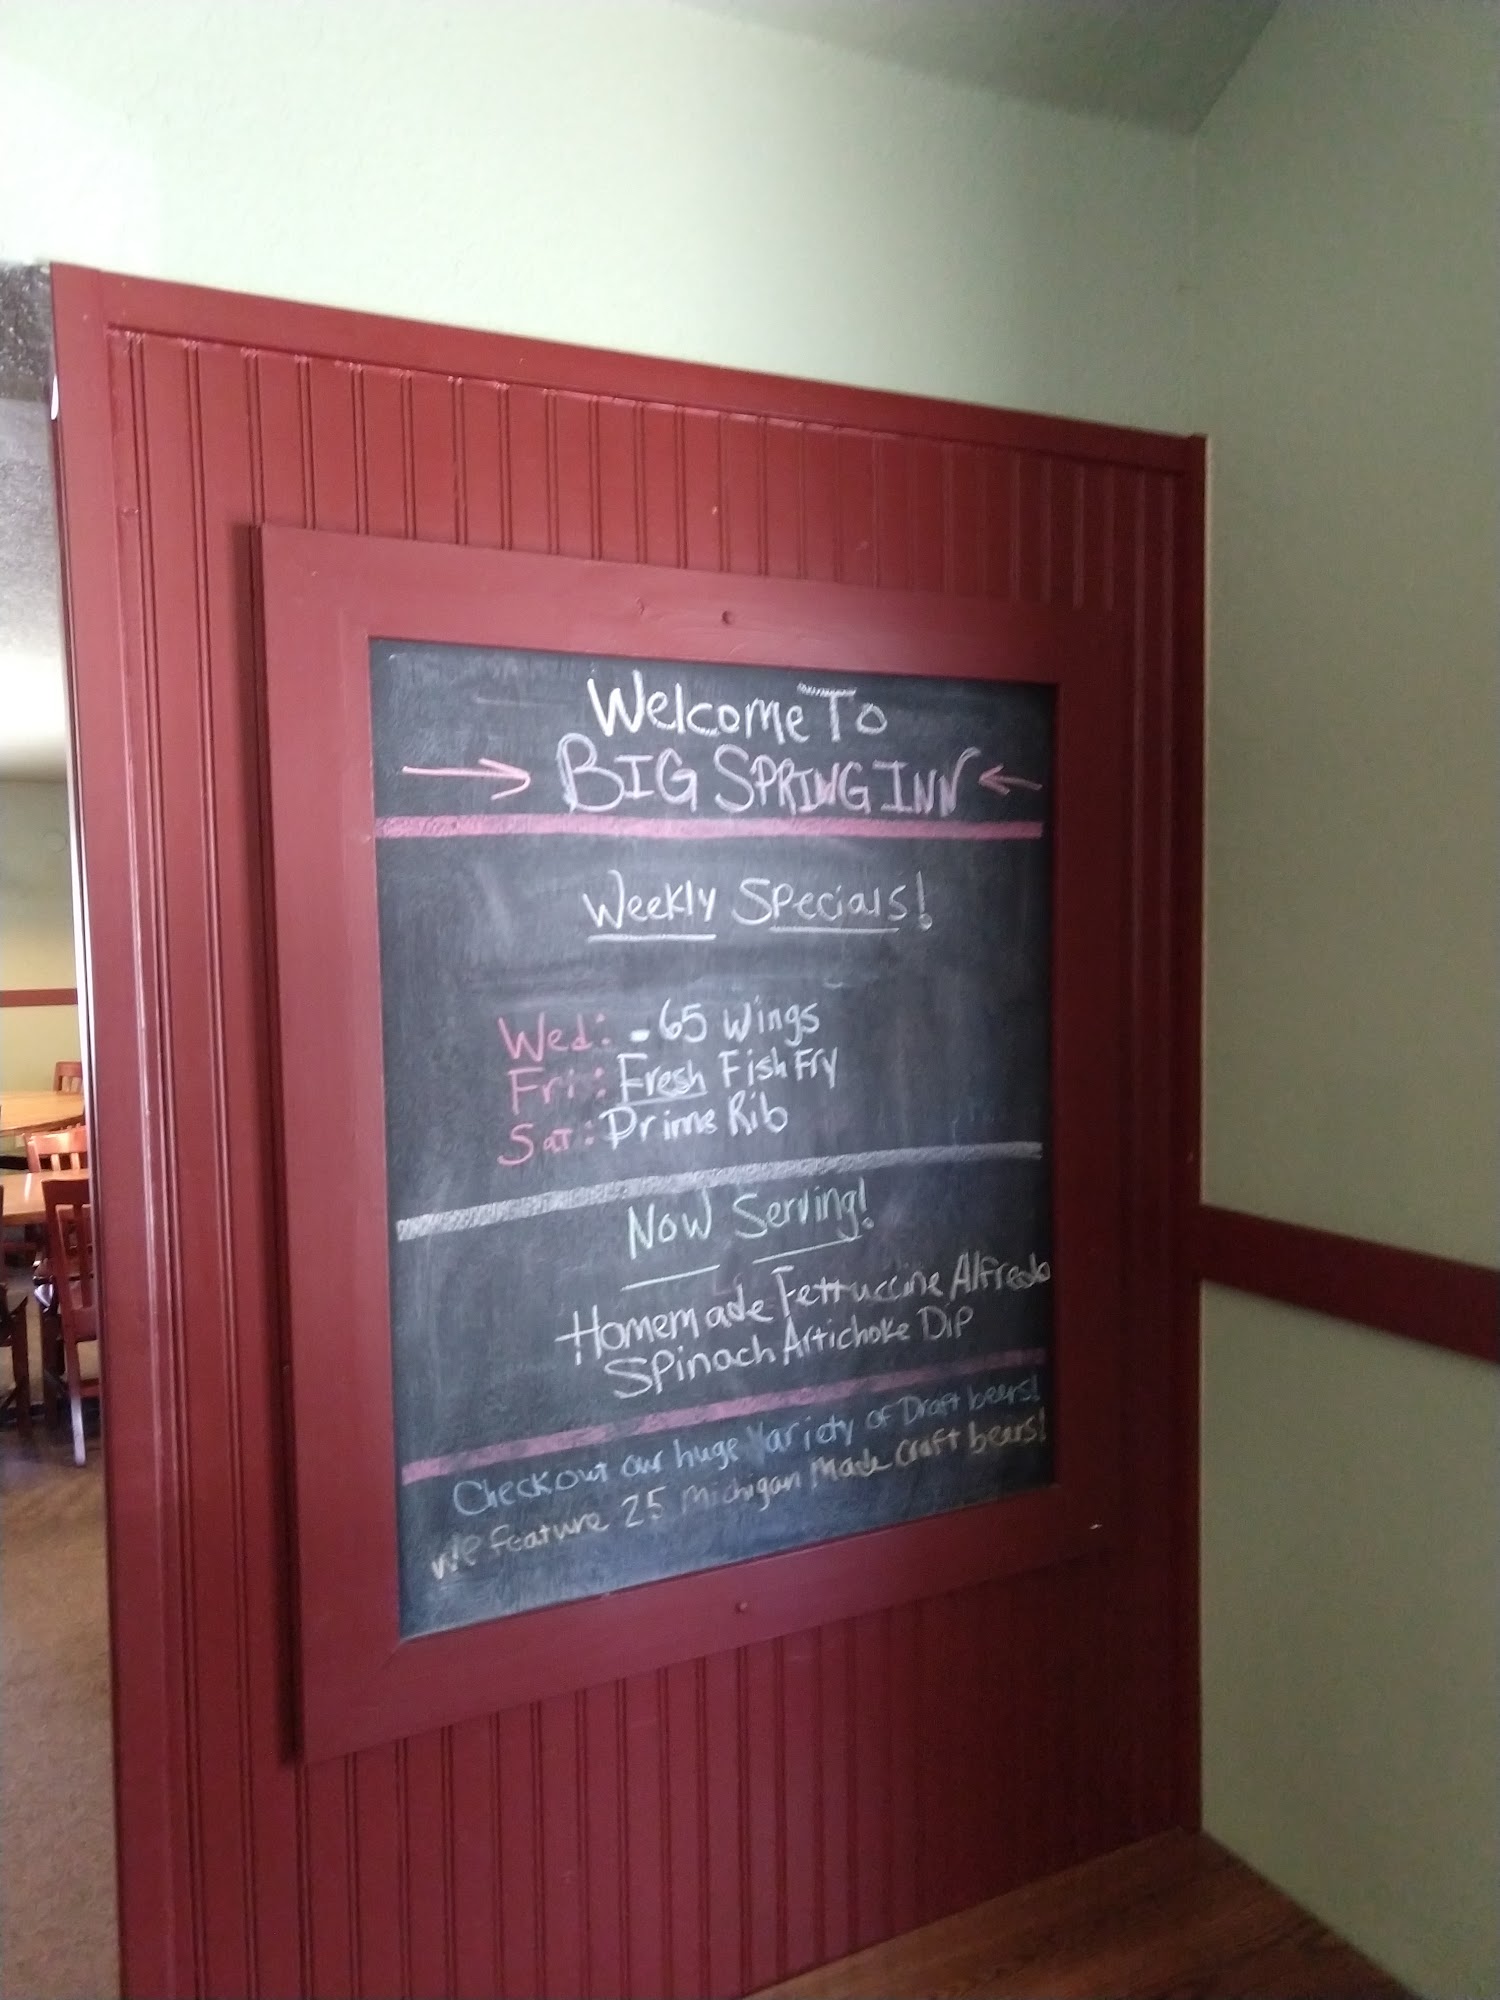 Welcome To
BIG SPRING INN
Weekly Specials!
Wed: .65 Wings
Fri: Fresh Fish Fry
Sat: Prime Rib
Now Serving!
Homemade Fettuccine Alfredo
Spinach Artichoke Dip
Check out our huge Variety of Draft beers!
We feature 25 Michigan Made Craft beers!